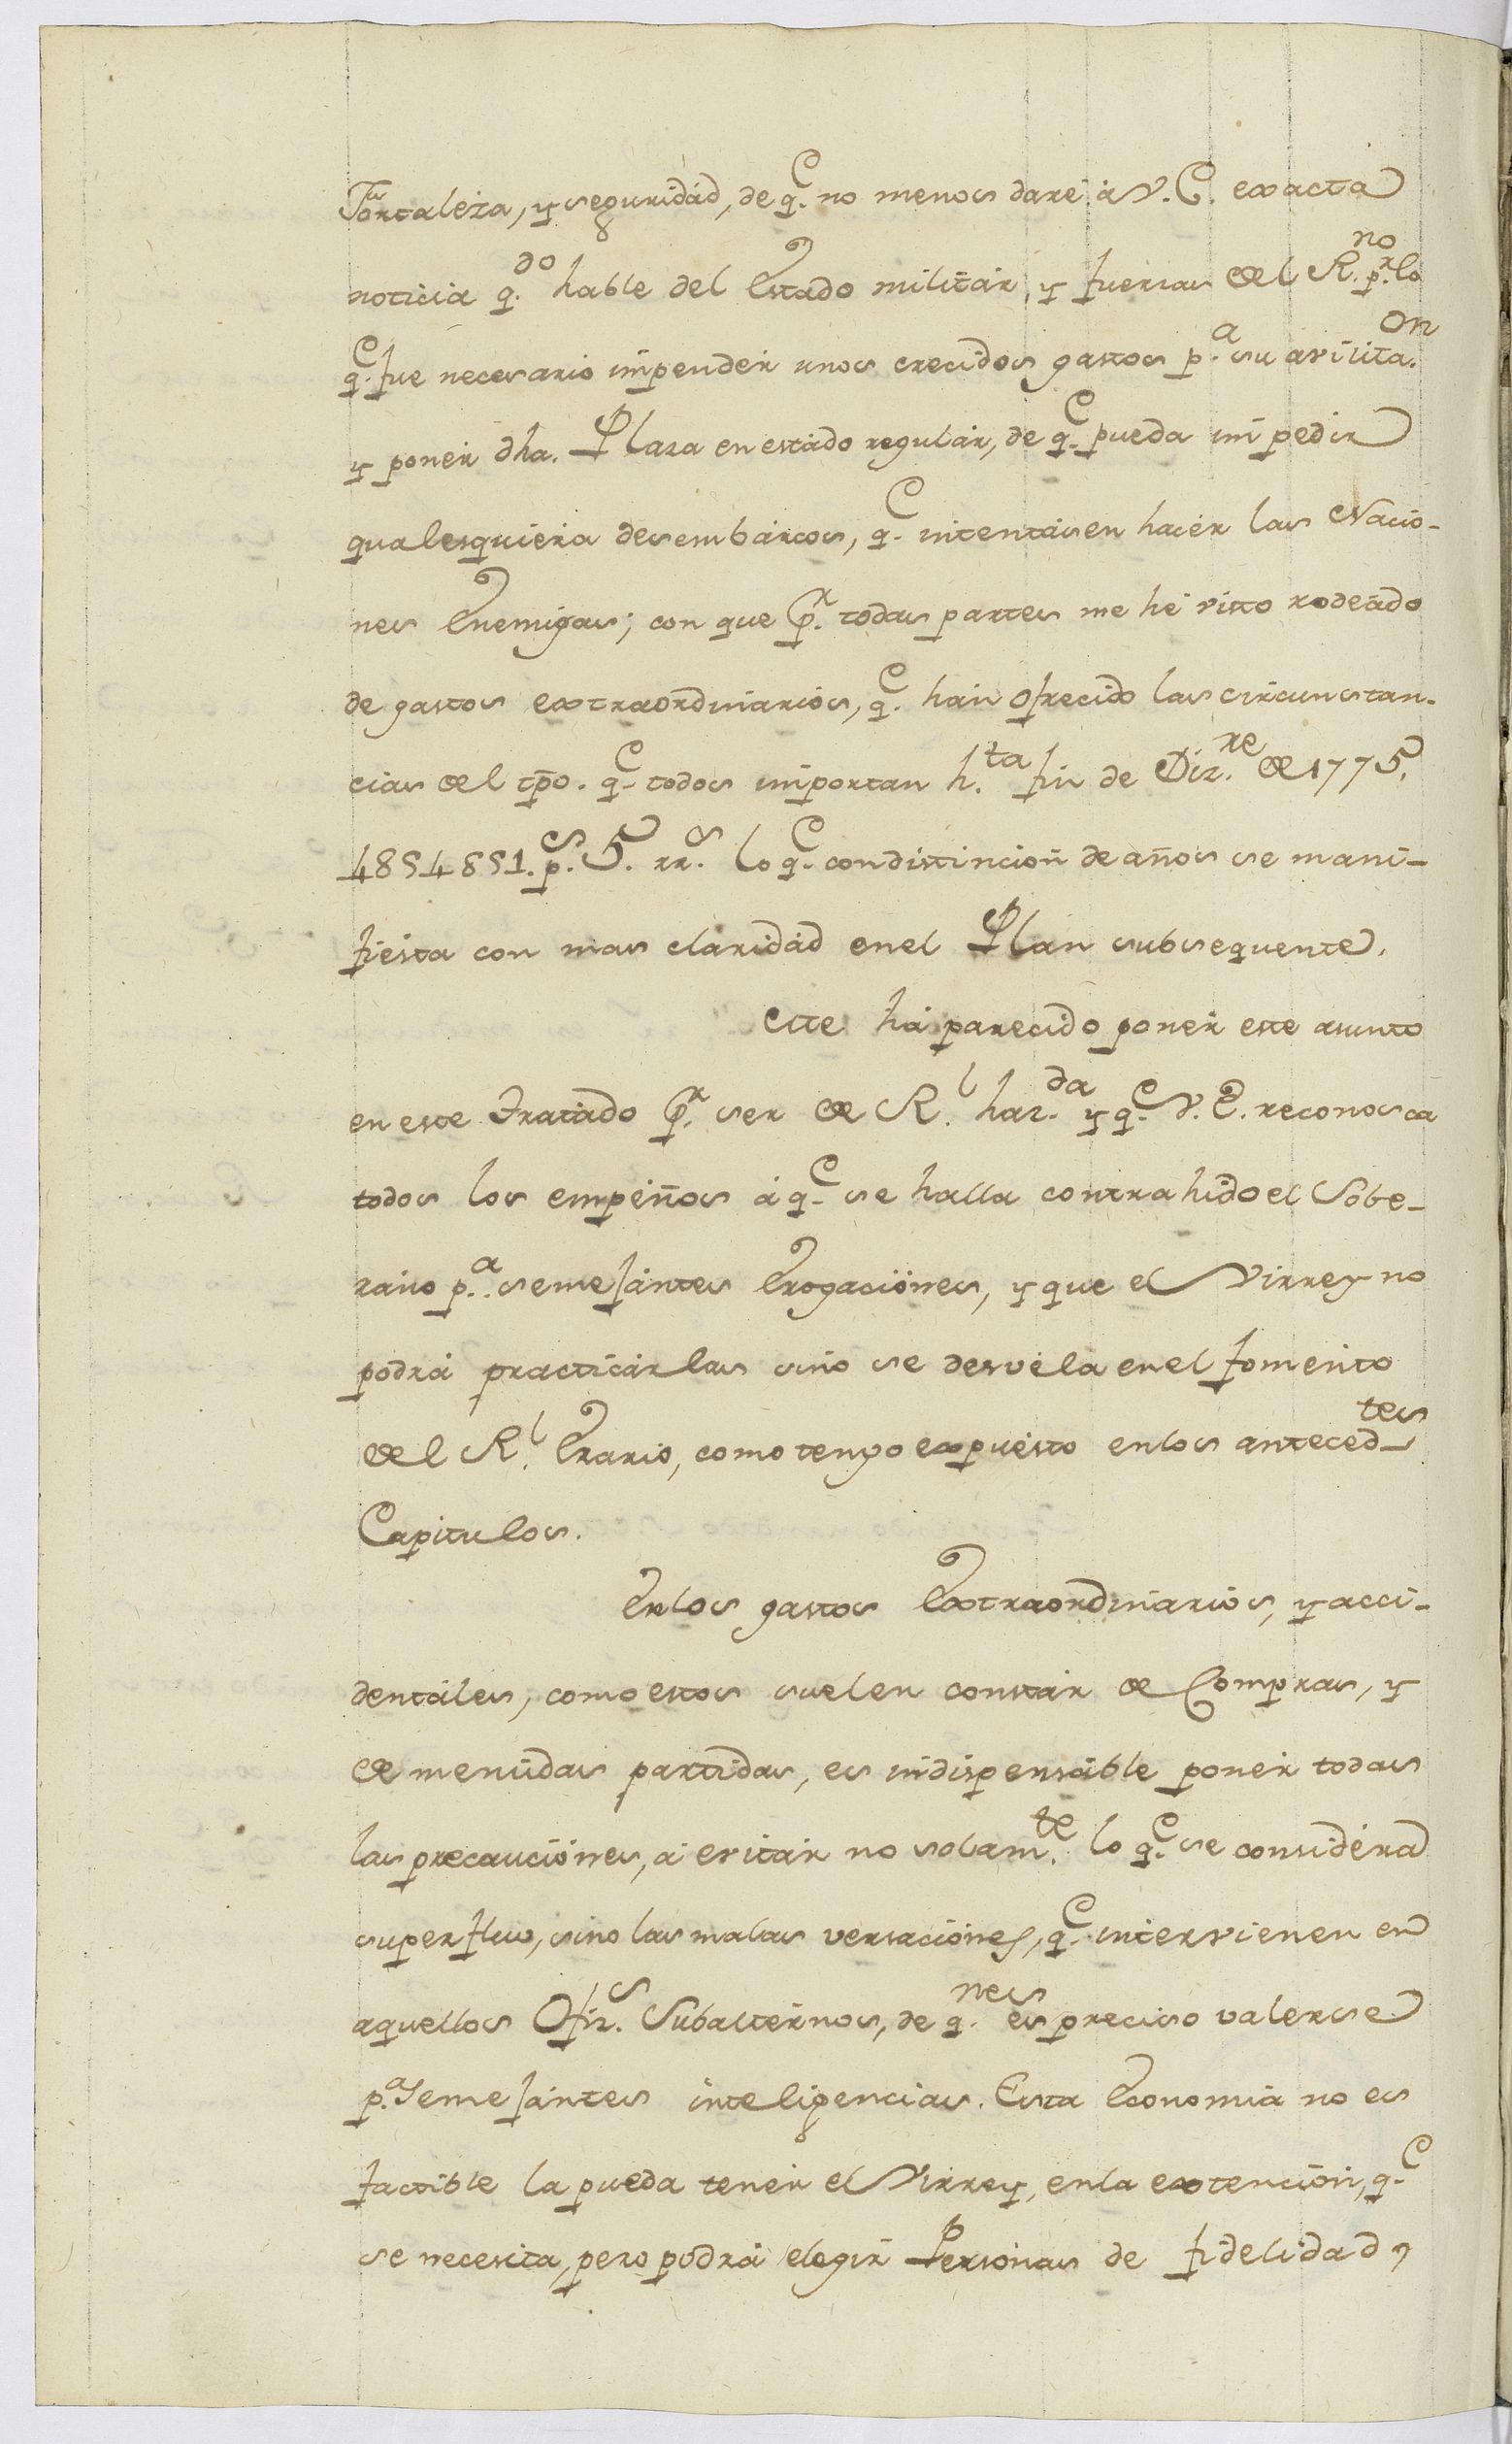 Fortaleza, y seguridad, de q.e no menos daré à V.E. exacta
noticia q.do hable del Estado militar, y fuerzas del R.no p.r lo
q.e fue necesario impender unos crecidos gastos p.a su avilita.on
y poner dha. Plaza en estado regular, de q.e pueda impedir
qualesquiera desembarcos, q.e intentasen hacer las Nacio-
nes Enemigas; con que p.r todas partes me hé visto rodeado
de gastos extraordinarios, q.e han ofrecido las circunstan-
cias del tpo. q.e todos importan h.ta fin de Diz.re de 1775,
4854851. p.s 5. rr.s lo q.e con distincion de años se mani-
fiesta con mas claridad en el Plan subsequente.
Me há parecido poner este asunto
en este Tratado p.r ser de R.l haz.da y q.e V.E. reconosca
todos los empeños á q.e se halla contrahido el Sobe-
rano p.a semejantes Erogaciones, y que el Virrey no
podrá practicarlas sino se desvela en el fomento
del R.l Erario, como tengo expuesto en los anteced.tes
Capitulos.
En los gastos Extraordinarios, y acci-
dentales, como estos suelen constar de Compras, y
de menudas partidas, es indispensable poner todas
las precauciónes, á evitar no solam.te lo q.e se considera
superfluo, sino las malas versaciones, q.e intervienen en
aquellos Ofiz.s Subalternos, de q.nes es preciso valerse
p.a Semejantes inteligencias. Esta Economia no es
factible la pueda tener el Virrey, en la extencion, q.e
se necesita, pero podrá elegir Personas de fidelidad,